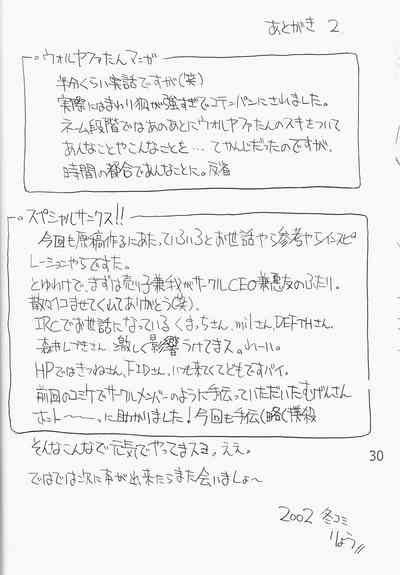 あとがき 2
ウォルヤファたんマンガ
半分くらい実話ですが(笑)
実際にはまわり狐が強すぎでコテンパンにされました。
ネーム段階ではあのあとにウォルヤファたんのスキをついて
あんなことやこんなことを…てかんじだったのですが、
時間の都合であんなことに。反省
スペシャルサンクス!!
今回も原稿作るにあたっていろいろとお世話やら参考やらインスピ
レーションやらですた。
とゆわけで、まずは売り子兼我がサークルCEO兼悪友のふたり。
散々コませてくれてありがとう(笑)
IRCでお世話になっているくまっちさん、milさん、DEFTHさん、
さん 激しく影響うけてまス。
HPではきつねさん、FIDさん、いつも来てくてどもですバイ。
前回のコミケでサークルメンバーのように手伝っていただいたむげんさん
ホント〜〜〜。に助かりました!今回も手伝(略(爆殺
そんなこんなで元気でやってまスヨ。ええ。
ではでは次に本が出来たらまた会いましょ〜
30
2002 冬コミ
りょう